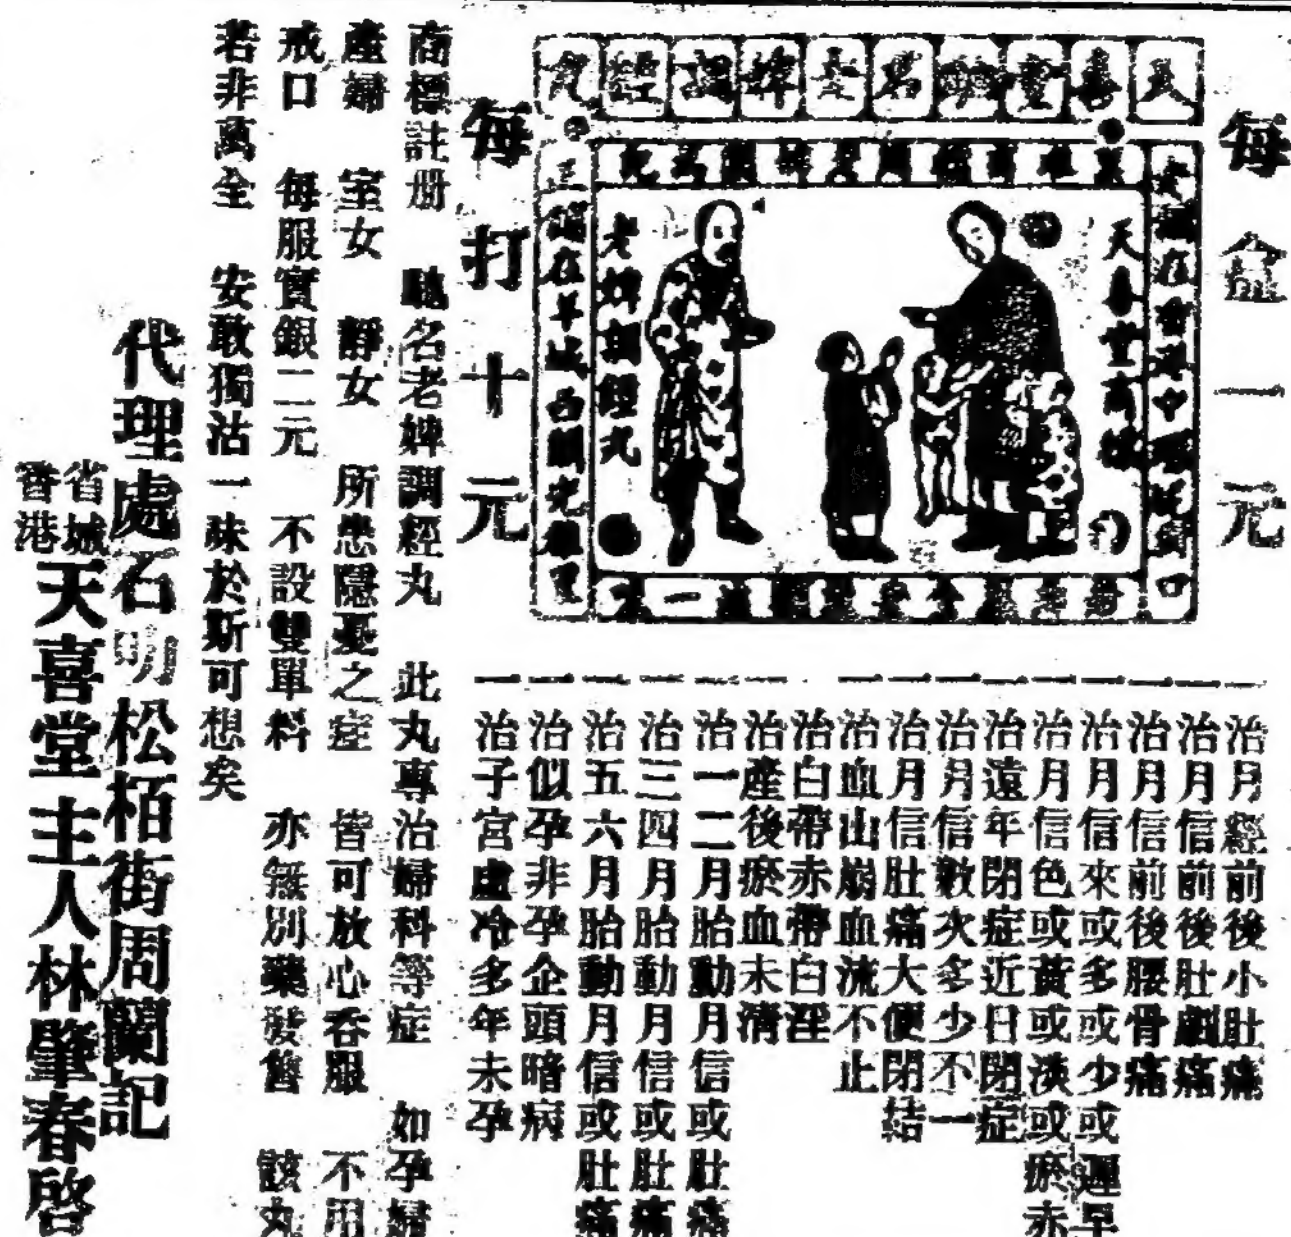 每盒一元
天喜堂商標
老婢調經丸
每打十元
一治月經前後小肚痛
一治月信前後肚劇痛
一治月信前後腰骨痛
一治月信來或多或少或遲早
一治月信色或黃或淡或瘀赤
一治遠年閉症近日閉症
一治月信數次多少不一
一治月信肚痛大便閉結
一治血山崩血流不止
治白帶赤帶白淫
一治產後瘀血未清
一治一二月胎動月信或肚痛
一治三四月胎動月信或肚痛
一治五六月胎動月信或肚痛
一治似孕非孕企頭暗病
一治子宮虛冷多年未孕
商標註册 馳名老婢調經丸 此丸專治婦科等症 如孕婦
產婦 室女 靜女 所患隱憂之症 皆可放心吞服 不用
戒口 每服實銀二元 不設雙單料 亦無別藥發售 該丸
若非萬全 安敢獨沽一味於斯可想矣
代理處石叻松栢街周蘭記
省城香港天喜堂主人林肇春啓